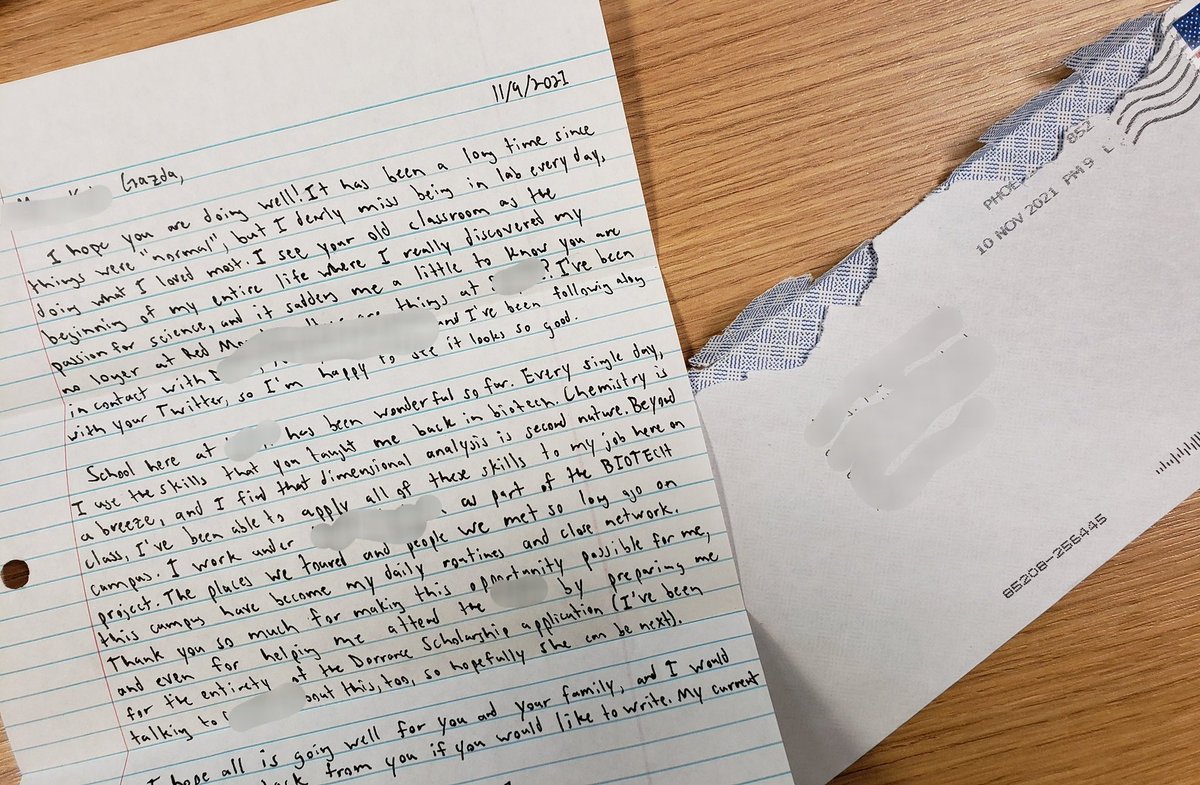 11/9/2021
Gazda,
I hope you are doing well! It has been a long time since
things were "normal", but I dearly miss being in lab every day,
doing what I loved most. I see your old classroom as the
beginning of my entire life where I really discovered my
passion for science, and it saddens me a little to know you are
no longer at Red are things at ? I've been
in contact with and I've been following along
with your Twitter, so I'm happy to see it looks so good.
School here at has been wonderful so far. Every single day,
I use the skills that you taught me back in biotech. Chemistry is
a breeze, and I find that dimensional analysis is second nature. Beyond
class, I've been able to apply all of these skills to my job here on
campus. I work under , as part of the BIOTECH
project. The places we toured and people we met so long go on
this campus have become my daily routines and close network.
Thank you so much for making this opportunity possible for me,
and even for helping me attend the by preparing me
for the entirety of the Dorrance Scholarship application (I've been
talking to about this, too, so hopefully she can be next).
I hope all is going well for you and your family, and I would
back from you if you would like to write. My current
852
10 NOV 2021 PM 9 L
85208-256445